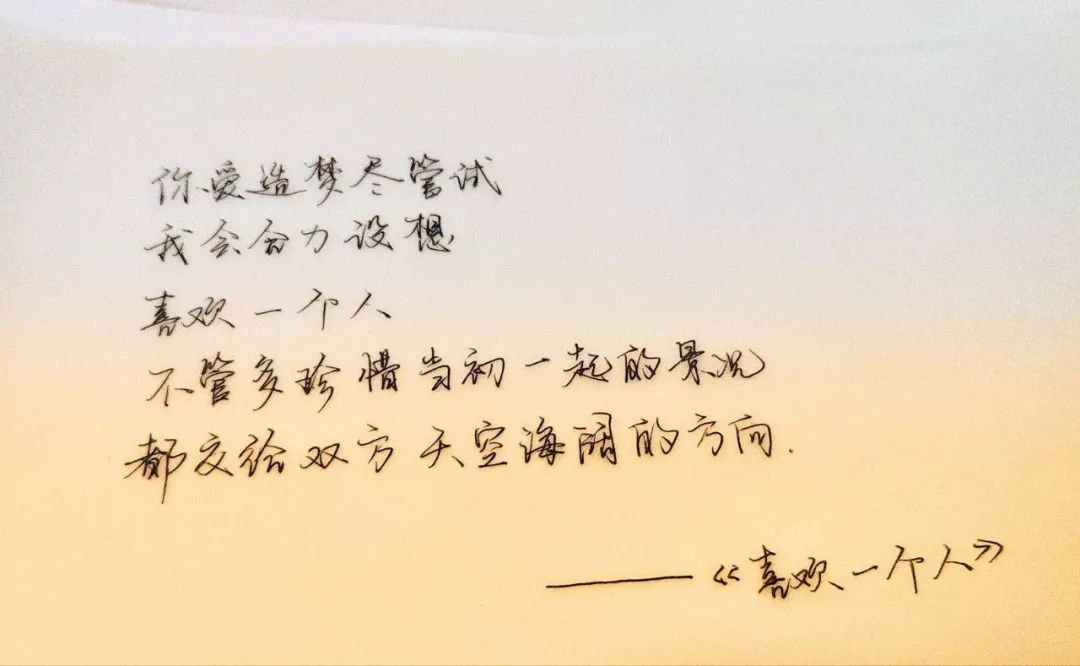 你爱造梦尽管试
我会合力设想
喜欢一个人
不管多珍惜当初一起的景况
都交给双方天空海阔的方向.
——《喜欢一个人》